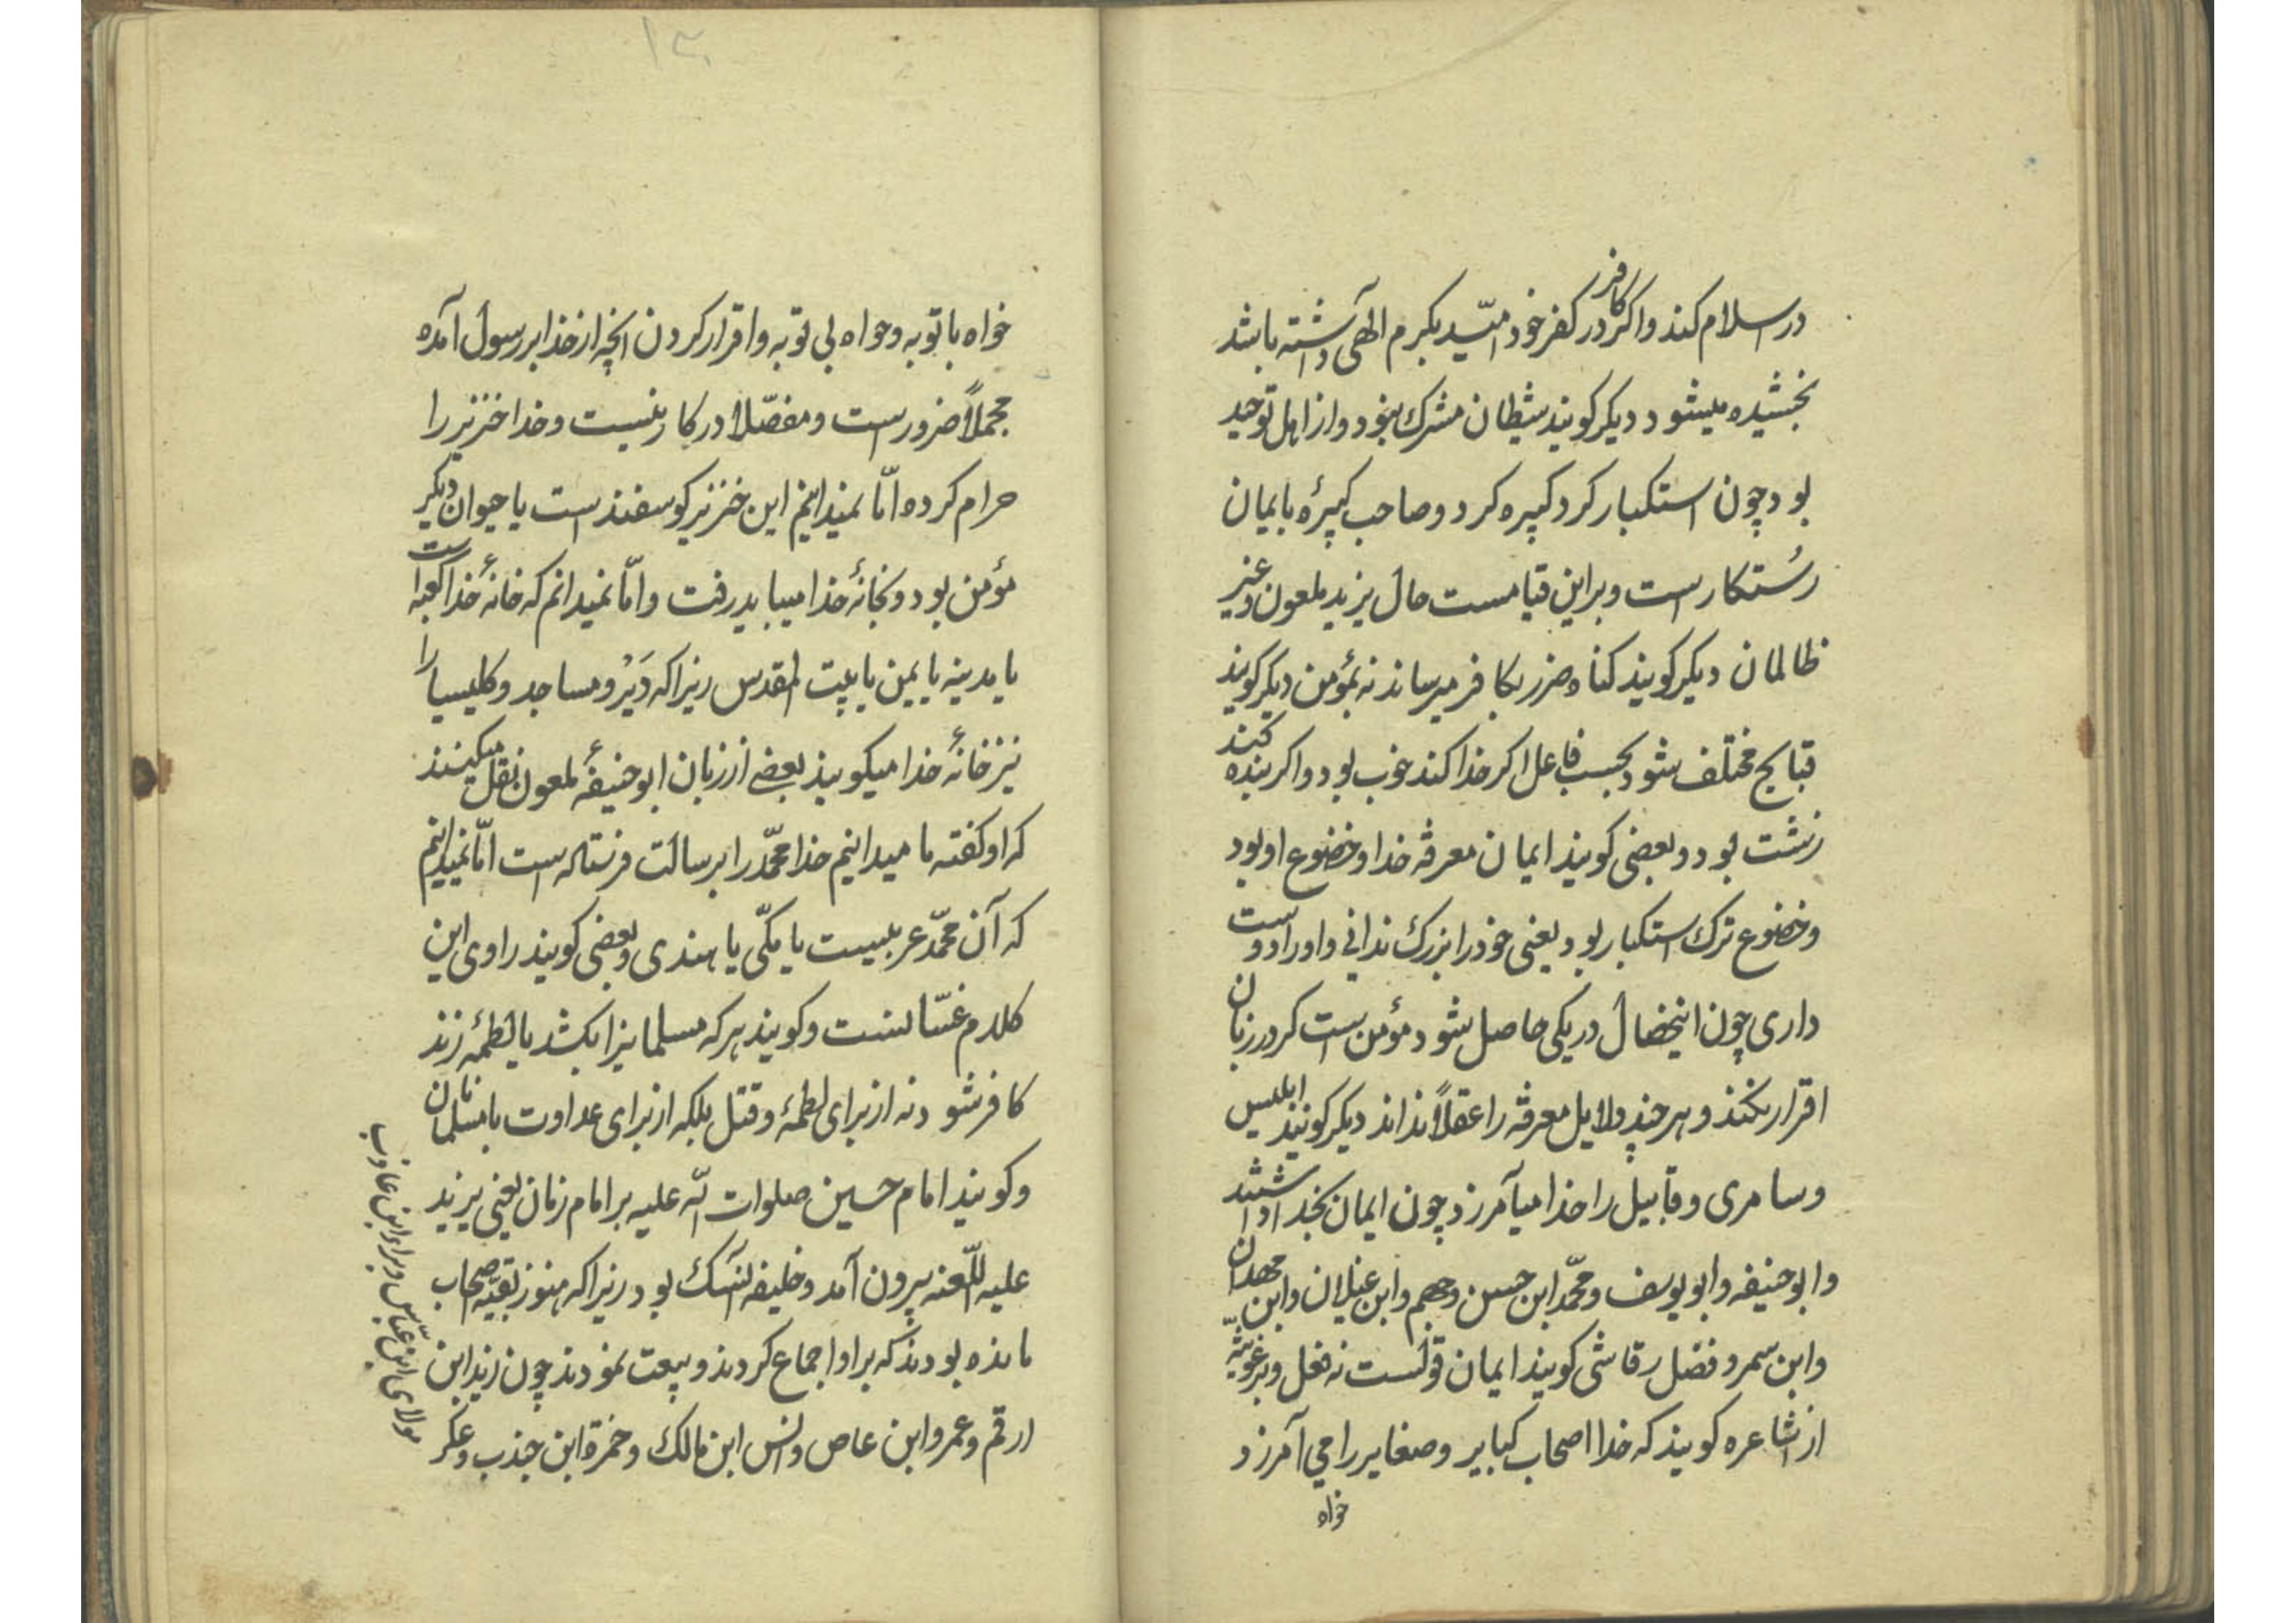 در اسلام کند و اگر کافر در کفر خود امّید بکرم الهی داشته باشد
بخشیده میشود دیگر گویند شیطان مشرک نبود و از اهل توحید
بود چون استکبار کرد کبیره کرد و صاحب کبیرهٔ بایمان
رُستکار است و براین قیاست حال یزید ملعون و غیر
ظالمان دیگر گویند کناه ضرر بکافر میرساند نه بمؤمن دیگر گویند
قبایح مختلف شود بحسب فاعل اگر خدا کند خوب بود و اگر بنده کند
زشت بود و بعضی گویند ایمان معرفة خدا و خضوع او بود
و خضوع ترک استکبار بود یعنی خود را بزرک ندانی و او را دوست
داری چون اینخصال در یکی حاصل شود مؤمن است کر در زبان
اقرار نکند و هر چند دلایل معرفة را عقلاً نداند دیگر گویند ابلیس
و سامری و قابیل را خدا میآمرزد چون ایمان بخدا داشتند
و ابو حنیفه و ابو یوسف و محمّد ابن حسن و جهم و ابن غیلان و ابن
و ابن سمر و فضل رقاشی گویند ایمان قولست نه فعل و برغوثیّه
از اشاعره گویند که خدا اصحاب کبایر و صغایر را می آمرزد
خواه
۱۳
خواه با توبه و خواه بی توبه و اقرار کردن انچه از خدا بر رسول آمده
مجملاً ضرور است و مفصّلا در کار نیست و خدا خنزیر را
حرام کرده امّا نمیدانیم این خنزیر کوسفند است یا حیوان دیگر
مؤمن بود و بخانهٔ خدا میباید رفت و امّا نمیدانم که خانهٔ خدا کعبه است
یا مدینه یا یمن یا بیت المقدس زیرا که دَیْر و مساجد و کلیسیا را
نیز خانهٔ خدا میکویند بعضی از زبان ابو حنیفهٔ ملعون نقل میکنند
که او کفته ما میدانیم خدا محمّد را برسالت فرستاده است امّا نمیدانیم
که آن محمّد عربیست یا مکّی یا هندی و بعضی کویند راوی این
کلام غسّانست و کویند هر که مسلمانیرا بکشد یا لطمهٔ زند
کافر شود نه از برای لطمهٔ و قتل بلکه از برای عداوت با مسلمانان
و کویند امام حسین صلوات الله علیه بر امام زمان یعنی یزید
علیه اللّعنه بیرون آمد و خلیفه بود زیرا که هنوز بقیّه صحاب
مانده بودند که بر او اجماع کردند و بیعت نمودند چون زید ابن
ارقم و عمرو ابن عاص و انس ابن مالک و حمزة ابن جندب و عکر
مولای ابن عبّاس و براء ابن عازب